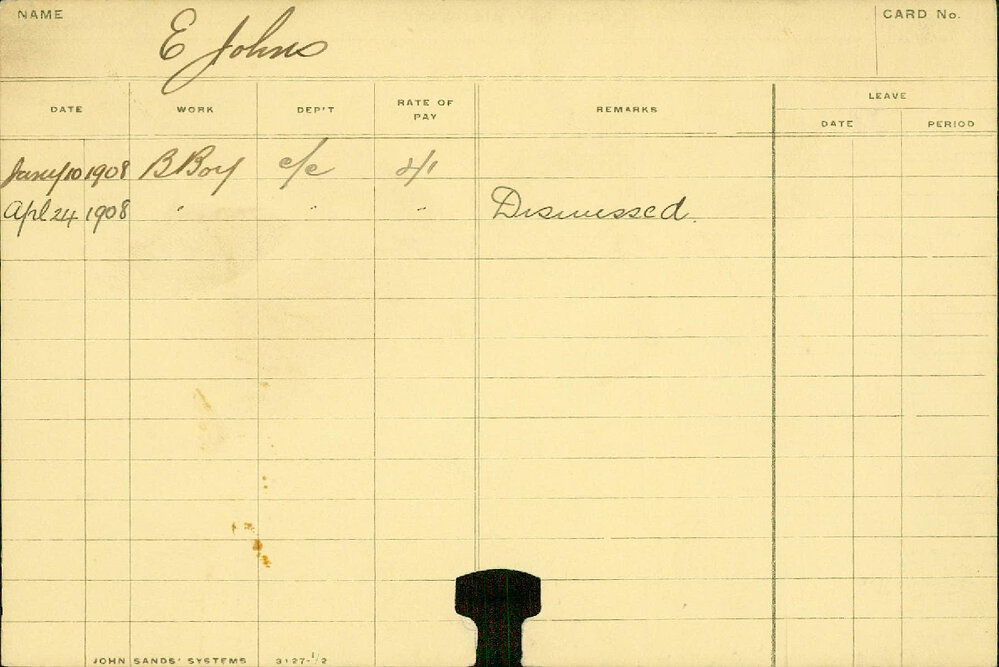 NAME E Johns CARD No.
DATE WORK DEP'T RATE OF PAY REMARKS LEAVE
DATE PERIOD
Jany 10 1908 B Boy c/c
Apl 24 1908 " " " Dismissed.
JOHN SANDS' SYSTEMS 3127-1/2